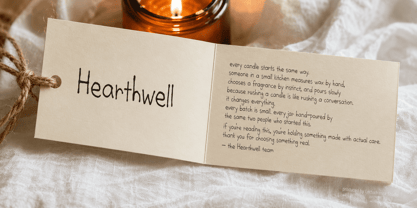 Hearthwell
every candle starts the same way.
someone in a small kitchen measures wax by hand,
chooses a fragrance by instinct, and pours slowly
because rushing a candle is like rushing a conversation.
it changes everything.
every batch is small, every jar hand-poured by
the same two people who started this.
if you're reading this, you're holding something made with actual care.
thank you for choosing something real.
— the Hearthwell team